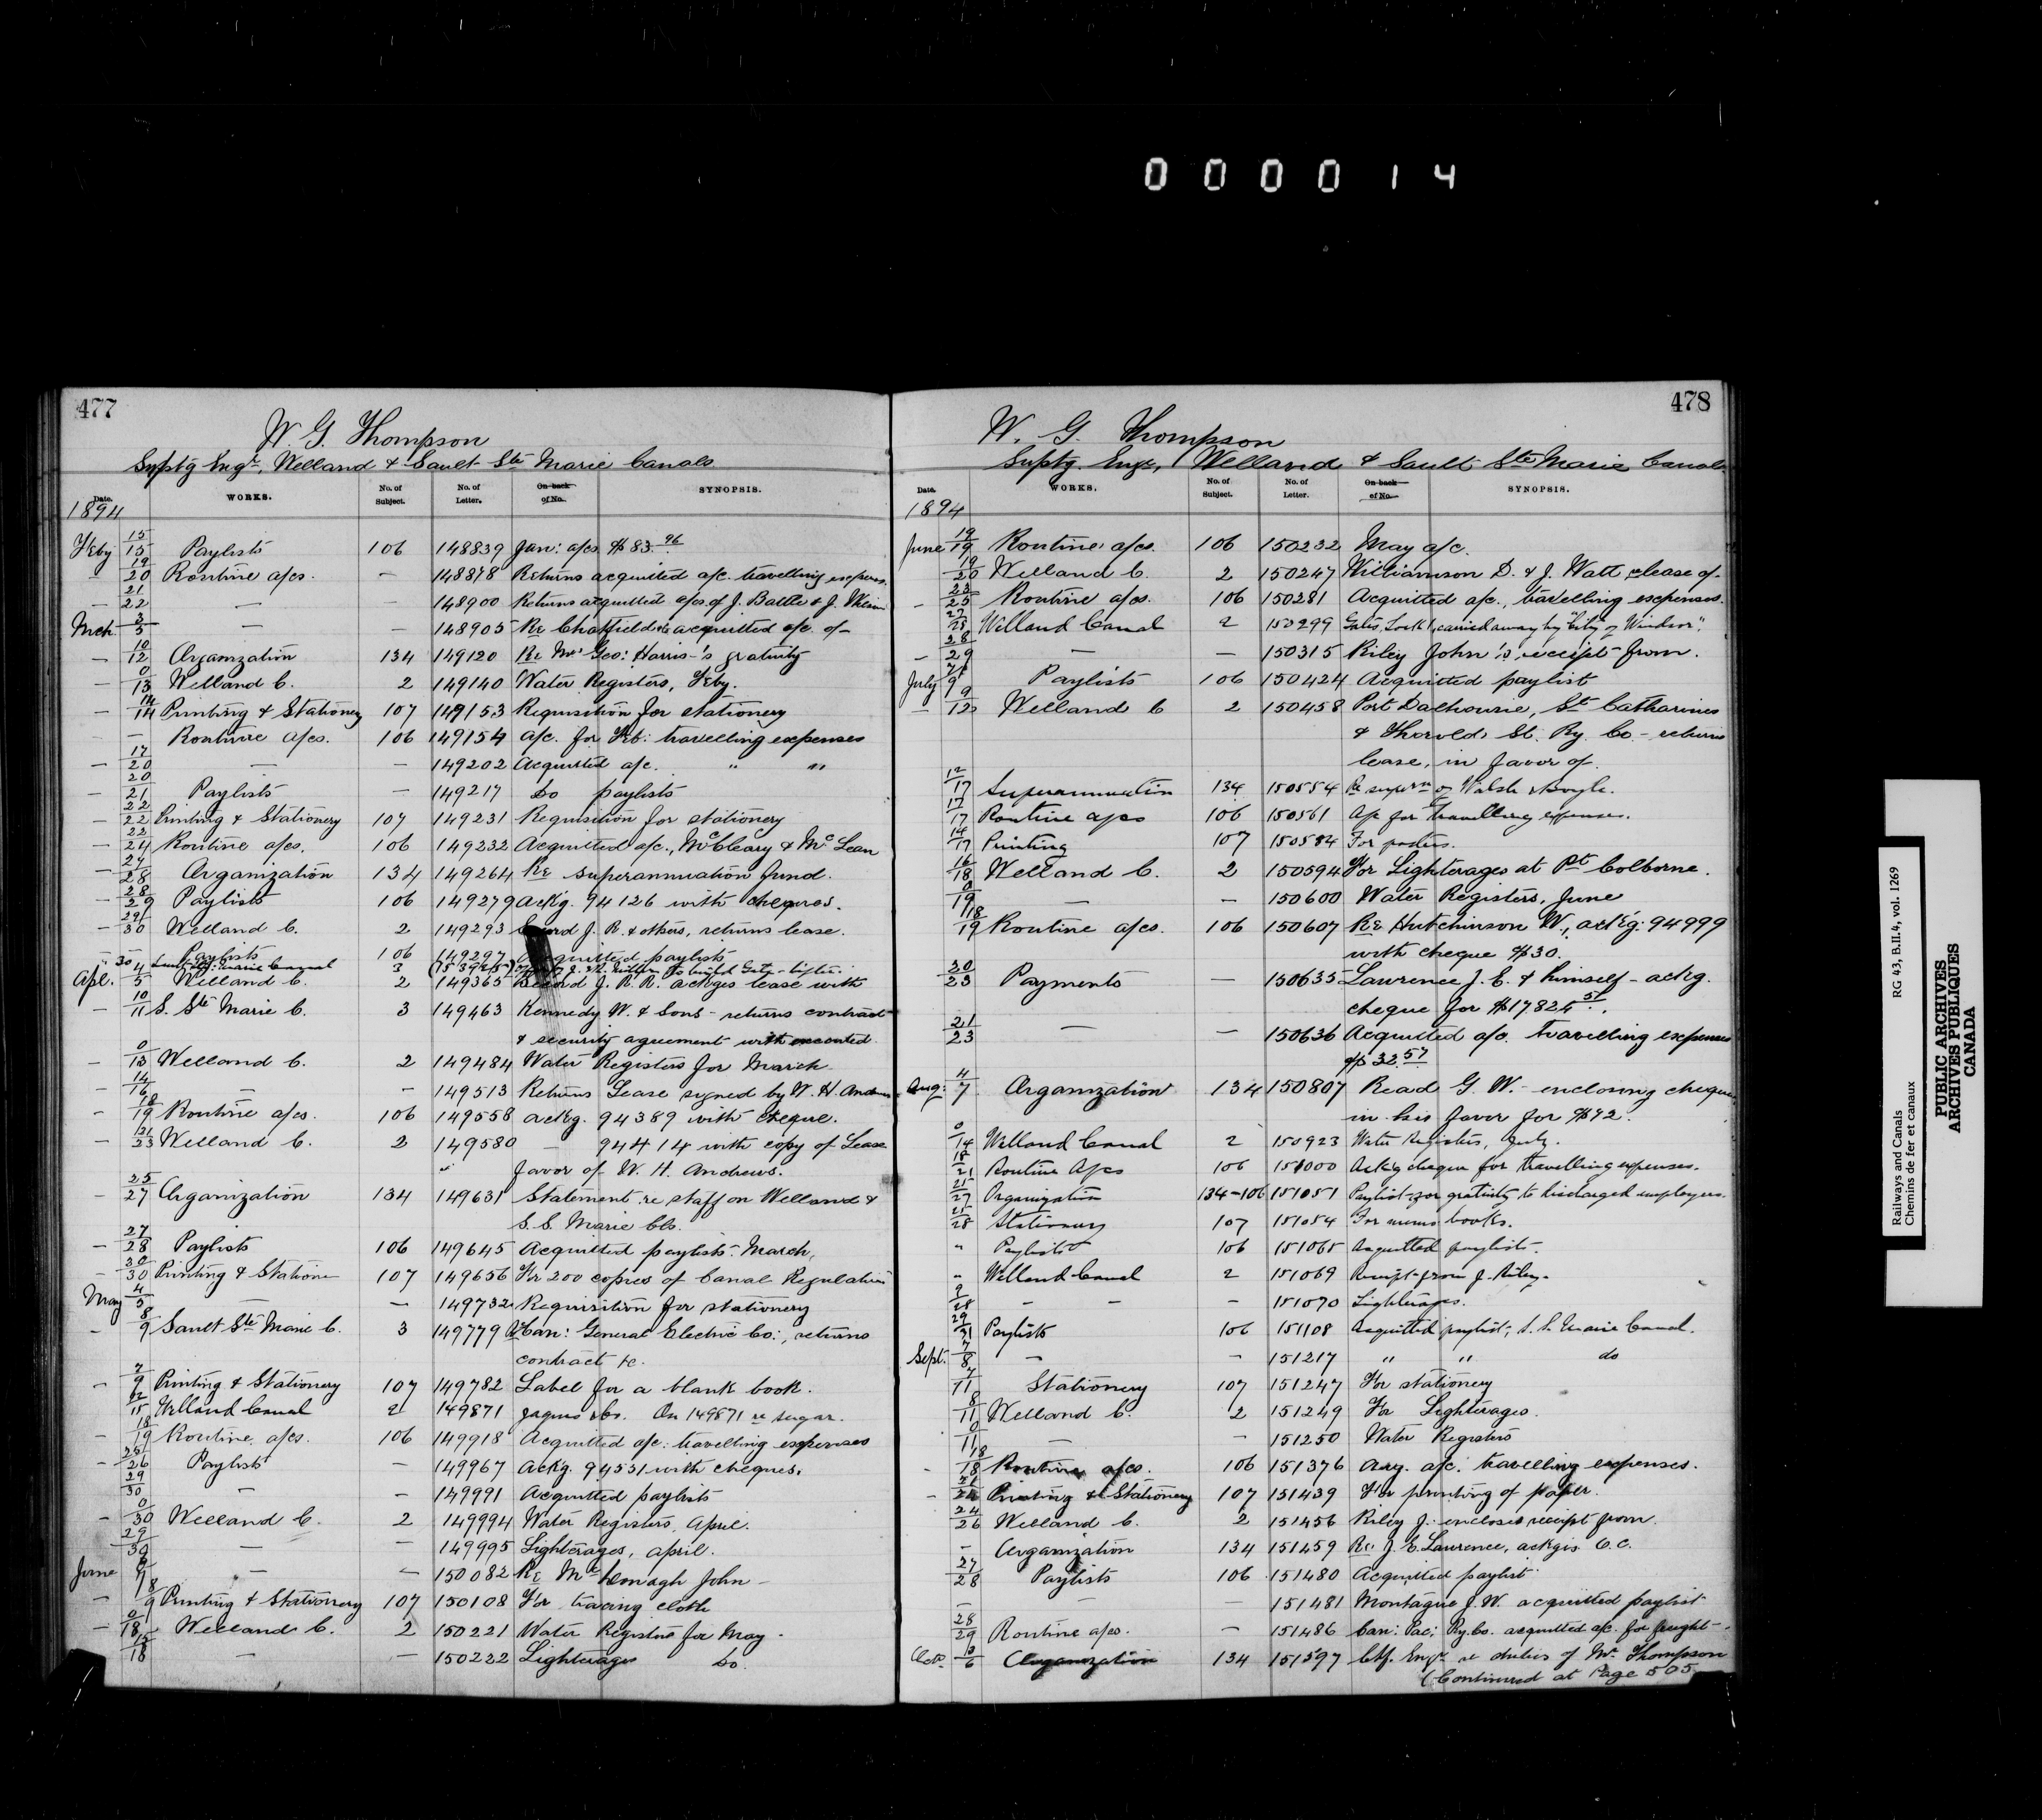 000014
477
W. G. Thompson
Suptg Engr, Welland & Sault Ste Marie Canals
Date. WORKS. No. of Subject. No. of Letter. On back of No. SYNOPSIS.
1894
Feby 15/15 Paylists 106 148839 Jan: a/cs $83.96
19/20 Routine a/cs. — 148878 Returns acquitted a/c. travelling expenses.
21/22 — — 148900 Returns acquitted a/cs. of J. Battle & J.
Mch 3/5 — — 148905 Re Chatfield acquitted a/c. of—
— 10/12 Organization 134 149120 Re Mr Geo: Harris-'s gratuity
— 0/13 Welland C. 2 149140 Water Registers, Feby.
— 14/14 Printing & Stationery 107 149153 Requisition for stationery
— Routine a/cs. 106 149154 A/c. for Feb: travelling expenses
— 17/20 — — 149202 Acquitted a/c. " "
— 20/21 Paylists — 149217 Do paylists
— 22/22 Printing & Stationery 107 149231 Requisition for stationery
— 22/24 Routine a/cs. 106 149232 Acquitted a/c., McCleary & McLean
— 27/28 Organization 134 149264 Re superannuation fund.
— 28/29 Paylists 106 149279 Ackg. 94126 with cheques.
— 29/30 Welland C. 2 149293 J. R. & others, returns lease.
" 30 Paylists 106 149297 Acquitted paylists
Sault Ste. Marie Canal 3
Apl. 4/5 Welland C. 2 149365 J. R. R. ackges lease with
— 10/11 S. Ste Marie C. 3 149463 Kennedy W. & Sons - returns contract
& security agreement with executed
— 0/13 Welland C. 2 149484 Water Registers for March
— 14/16 — — 149513 Returns Lease signed by W. H. Andrews
— 18/19 Routine a/cs. 106 149558 Ackg. 94389 with cheque.
— 21/23 Welland C. 2 149580 — 94414 with copy of Lease
" favor of W. H. Andrews.
— 25/27 Organization 134 149631 Statement re staff on Welland &
S. S. Marie Cls.
— 27/28 Paylists 106 149645 Acquitted paylists. March,
— 30/30 Printing & Stationery 107 149656 For 200 copies of Canal Regulations
May 4/5 — — 149732 Requisition for stationery
— 8/9 Sault Ste Marie C. 3 149779 Can: General Electric Co:, returns
contract &c.
— 7/9 Printing & Stationery 107 149782 Label for a blank book.
12/15 Welland Canal 2 149871 Jaques & Co. On 149871 re sugar.
— 18/19 Routine a/cs. 106 149918 Acquitted a/c. travelling expenses
— 25/26 Paylist — 149967 Ackg. 94531 with cheques.
29/30 — — 149991 Acquitted paylists
— 0/30 Welland C. 2 149994 Water Registers, April.
29/30 — — 149995 Lighterages, April.
June — — 150082 Re McConagh John —
— 8/9 Printing & Stationery 107 150108 For tracing cloth
— 0/18 Welland C. 2 150221 Water Registers for May.
15/18 — — 150222 Lighterages Do.
478
W. G. Thompson
Suptg. Engr, Welland & Sault Ste Marie Canals
Date. WORKS. No. of Subject. No. of Letter. On back of No. SYNOPSIS.
1894
June 19/19 Routine a/cs. 106 150232 May a/c.
19/20 Welland C. 2 150247 Williamson D. & J. Watt, lease of—
— 22/25 Routine a/cs. 106 150281 Acquitted a/c., travelling expenses.
27/28 Welland Canal 2 150299 Gates, Lock 1, carried away by "City of Windsor".
— 28/29 — — 150315 Riley John's, receipt from.
July 7/9 Paylists 106 150424 Acquitted paylist
— 9/12 Welland C 2 150458 Port Dalhousie, St. Catharines
& Thorold St. Ry. Co - returns
lease, in favor of
12/17 Superannuation 134 150554 Re superan of Walsh & Boyle.
17/17 Routine a/cs 106 150561 A/c for travelling expenses.
14/17 Printing 107 150584 For posters.
16/18 Welland C. 2 150594 For Lighterages at Pt Colborne.
0/19 — — 150600 Water Registers, June
18/19 Routine a/cs. 106 150607 Re Hutchinson W., ackg: 94999
with cheque $30.
20/23 Payments — 150635 Lawrence J. E. & himself - ackg.
cheque for
21/23 — — 150636 Acquitted a/c. travelling expenses
$32.57
Aug: 4/7 Organization 134 150807 Read G. W. - enclosing cheque
in his favor for
0/14 Welland Canal 2 150923 Water Registers, July.
18/21 Routine A/cs 106 151000 Ackg cheque for travelling expenses.
21/27 Organization 134-106 151051 Paylist for gratuity to discharged employees.
21/28 Stationery 107 151054 For memo books.
" Paylists 106 151065 Acquitted paylists.
" Welland Canal 2 151069 Receipt from J. Riley.
2/28 — — — 151070 Lighterages.
29/31 Paylists 106 151108 Acquitted paylist, S. S. Marie Canal.
Sept. 7/8 — — 151217 " " do
7/11 Stationery 107 151247 For stationery
8/11 Welland C. 2 151249 For Lighterages.
0/11 — — 151250 Water Registers
— 18/18 Routine a/cs. 106 151376 Aug. a/c. travelling expenses.
— 21/24 Printing & Stationery 107 151439 For printing of paper.
24/26 Welland C. 2 151456 Riley J. encloses receipt from.
— Organization 134 151459 Re: J. E. Lawrence, ackgs O.C.
27/28 Paylists 106 151480 Acquitted paylist
— — — 151481 Montague J. W. acquitted paylist
28/29 Routine a/cs. — 151486 Can: Pac: Ry. Co. acquitted a/c. for freight—
Octr. Organization 134 151597 Chf. Engr re duties of Mr. Thompson
(Continued at Page 505
Railways and Canals
Chemins de fer et canaux
RG 43, B.II.4, vol. 1269
PUBLIC ARCHIVES
ARCHIVES PUBLIQUES
CANADA